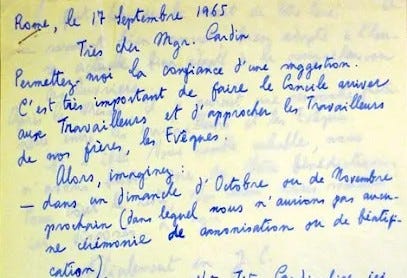 Rome, le 17 Septembre 1965
Très cher Mgr. Cardin
Permettez-moi la confiance d'une suggestion.
C'est très important de faire le Concile arriver
aux Travailleurs et d'approcher les Travailleurs
de nos frères, les Evêques.
Alors, imaginez:
— dans un dimanche d'Octobre ou de Novembre
prochain (dans lequel nous n'aurions pas aucu-
ne cérémonie de canonisation ou de béatifi-
cation),